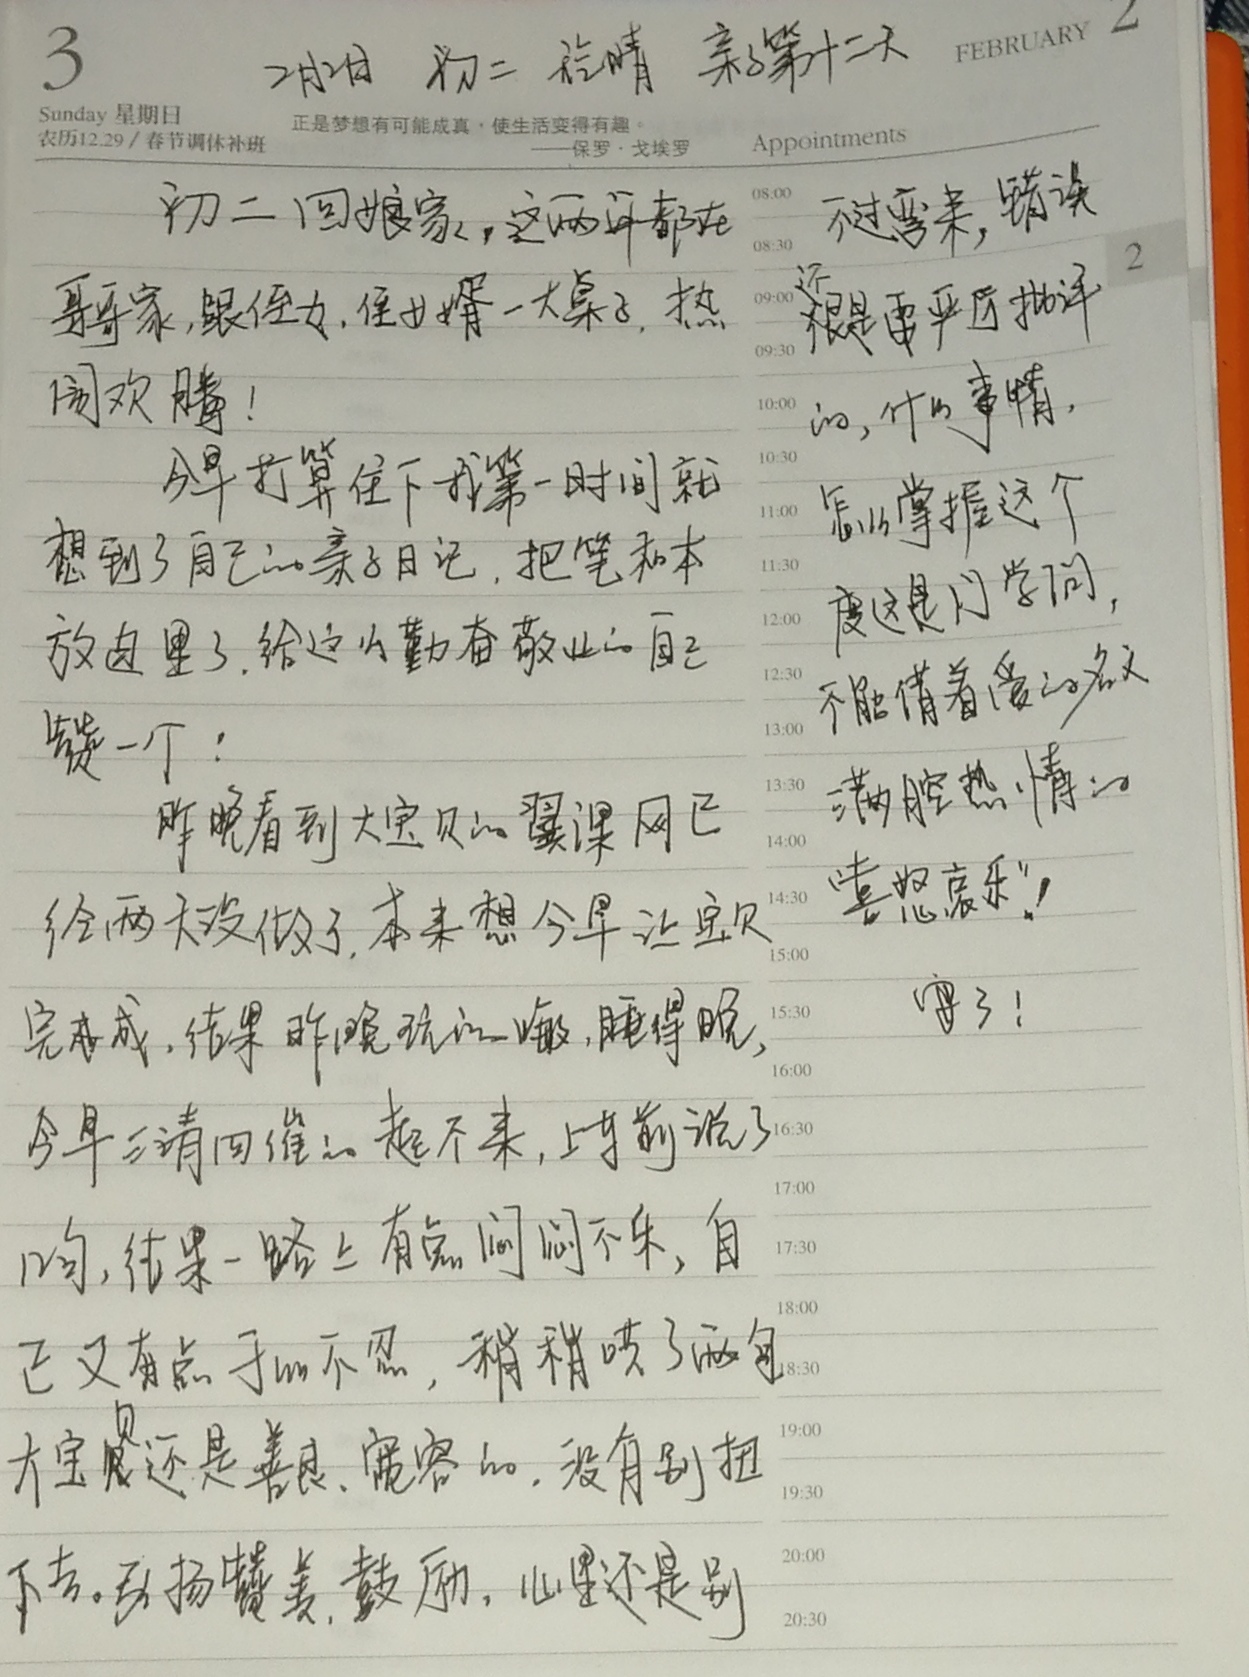 3
2月2日 初二 晴 亲子第十二天
FEBRUARY 2
Sunday 星期日
农历12.29 / 春节调休补班
正是梦想有可能成真,使生活变得有趣。
——保罗·戈埃罗
Appointments
初二回娘家,这两年都在
哥哥家,跟侄女、侄女婿一大桌子,热
闹欢腾!
今早打算住下我第一时间就
想到了自己的亲子日记,把笔和本
放包里了,给这么勤奋敬业的自己
赞一个!
昨晚看到大宝贝的翼课网已
经两天没做了,本来想今早让宝贝
完成,结果昨晚玩的嗨,睡得晚,
今早三请四催的起不来,上车前说了
几句,结果一路上有点闷闷不乐,自
己又有点于心不忍,稍稍喷了两句
大宝贝还是善良、宽容的,没有别扭
下去。表扬赞美、鼓励,心里还是别
不过弯来,错误
还是要严厉批评
的,什么事情,
怎么掌握这个
度这是门学问,
不能借着爱的名义
满腔热情的
"喜怒哀乐"!
08:00
08:30
09:00
09:30
10:00
10:30
11:00
11:30
12:00
12:30
13:00
13:30
14:00
14:30
15:00
15:30
16:00
16:30
17:00
17:30
18:00
18:30
19:00
19:30
20:00
20:30
2